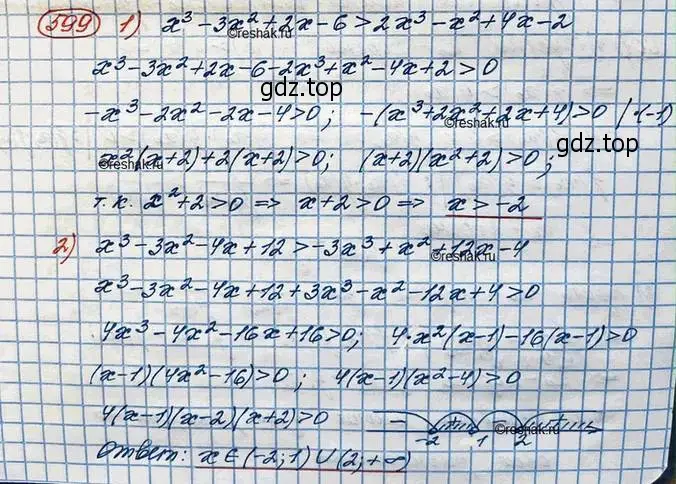 599 1) x³-3x²+2x-6>2x³-x²+4x-2
©reshak.ru
x³-3x²+2x-6-2x³+x²-4x+2>0
gdz.top
-x³-2x²-2x-4>0; -(x³+2x²+2x+4)>0 |·(-1)
©reshak.ru
gdz.top
x²(x+2)+2(x+2)>0; (x+2)(x²+2)>0;
©reshak.ru
т.к. x²+2>0 ⇒ x+2>0 ⇒ x>-2
2) x³-3x²-4x+12>-3x³+x²+12x-4
©reshak.ru
x³-3x²-4x+12+3x³-x²-12x+4>0
4x³-4x²-16x+16>0; 4·x²(x-1)-16(x-1)>0
(x-1)(4x²-16)>0; 4(x-1)(x²-4)>0
4(x-1)(x-2)(x+2)>0 - + - +
-2 1 2
©reshak.ru
Ответ: x∈(-2;1)∪(2;+∞)
gdz.top